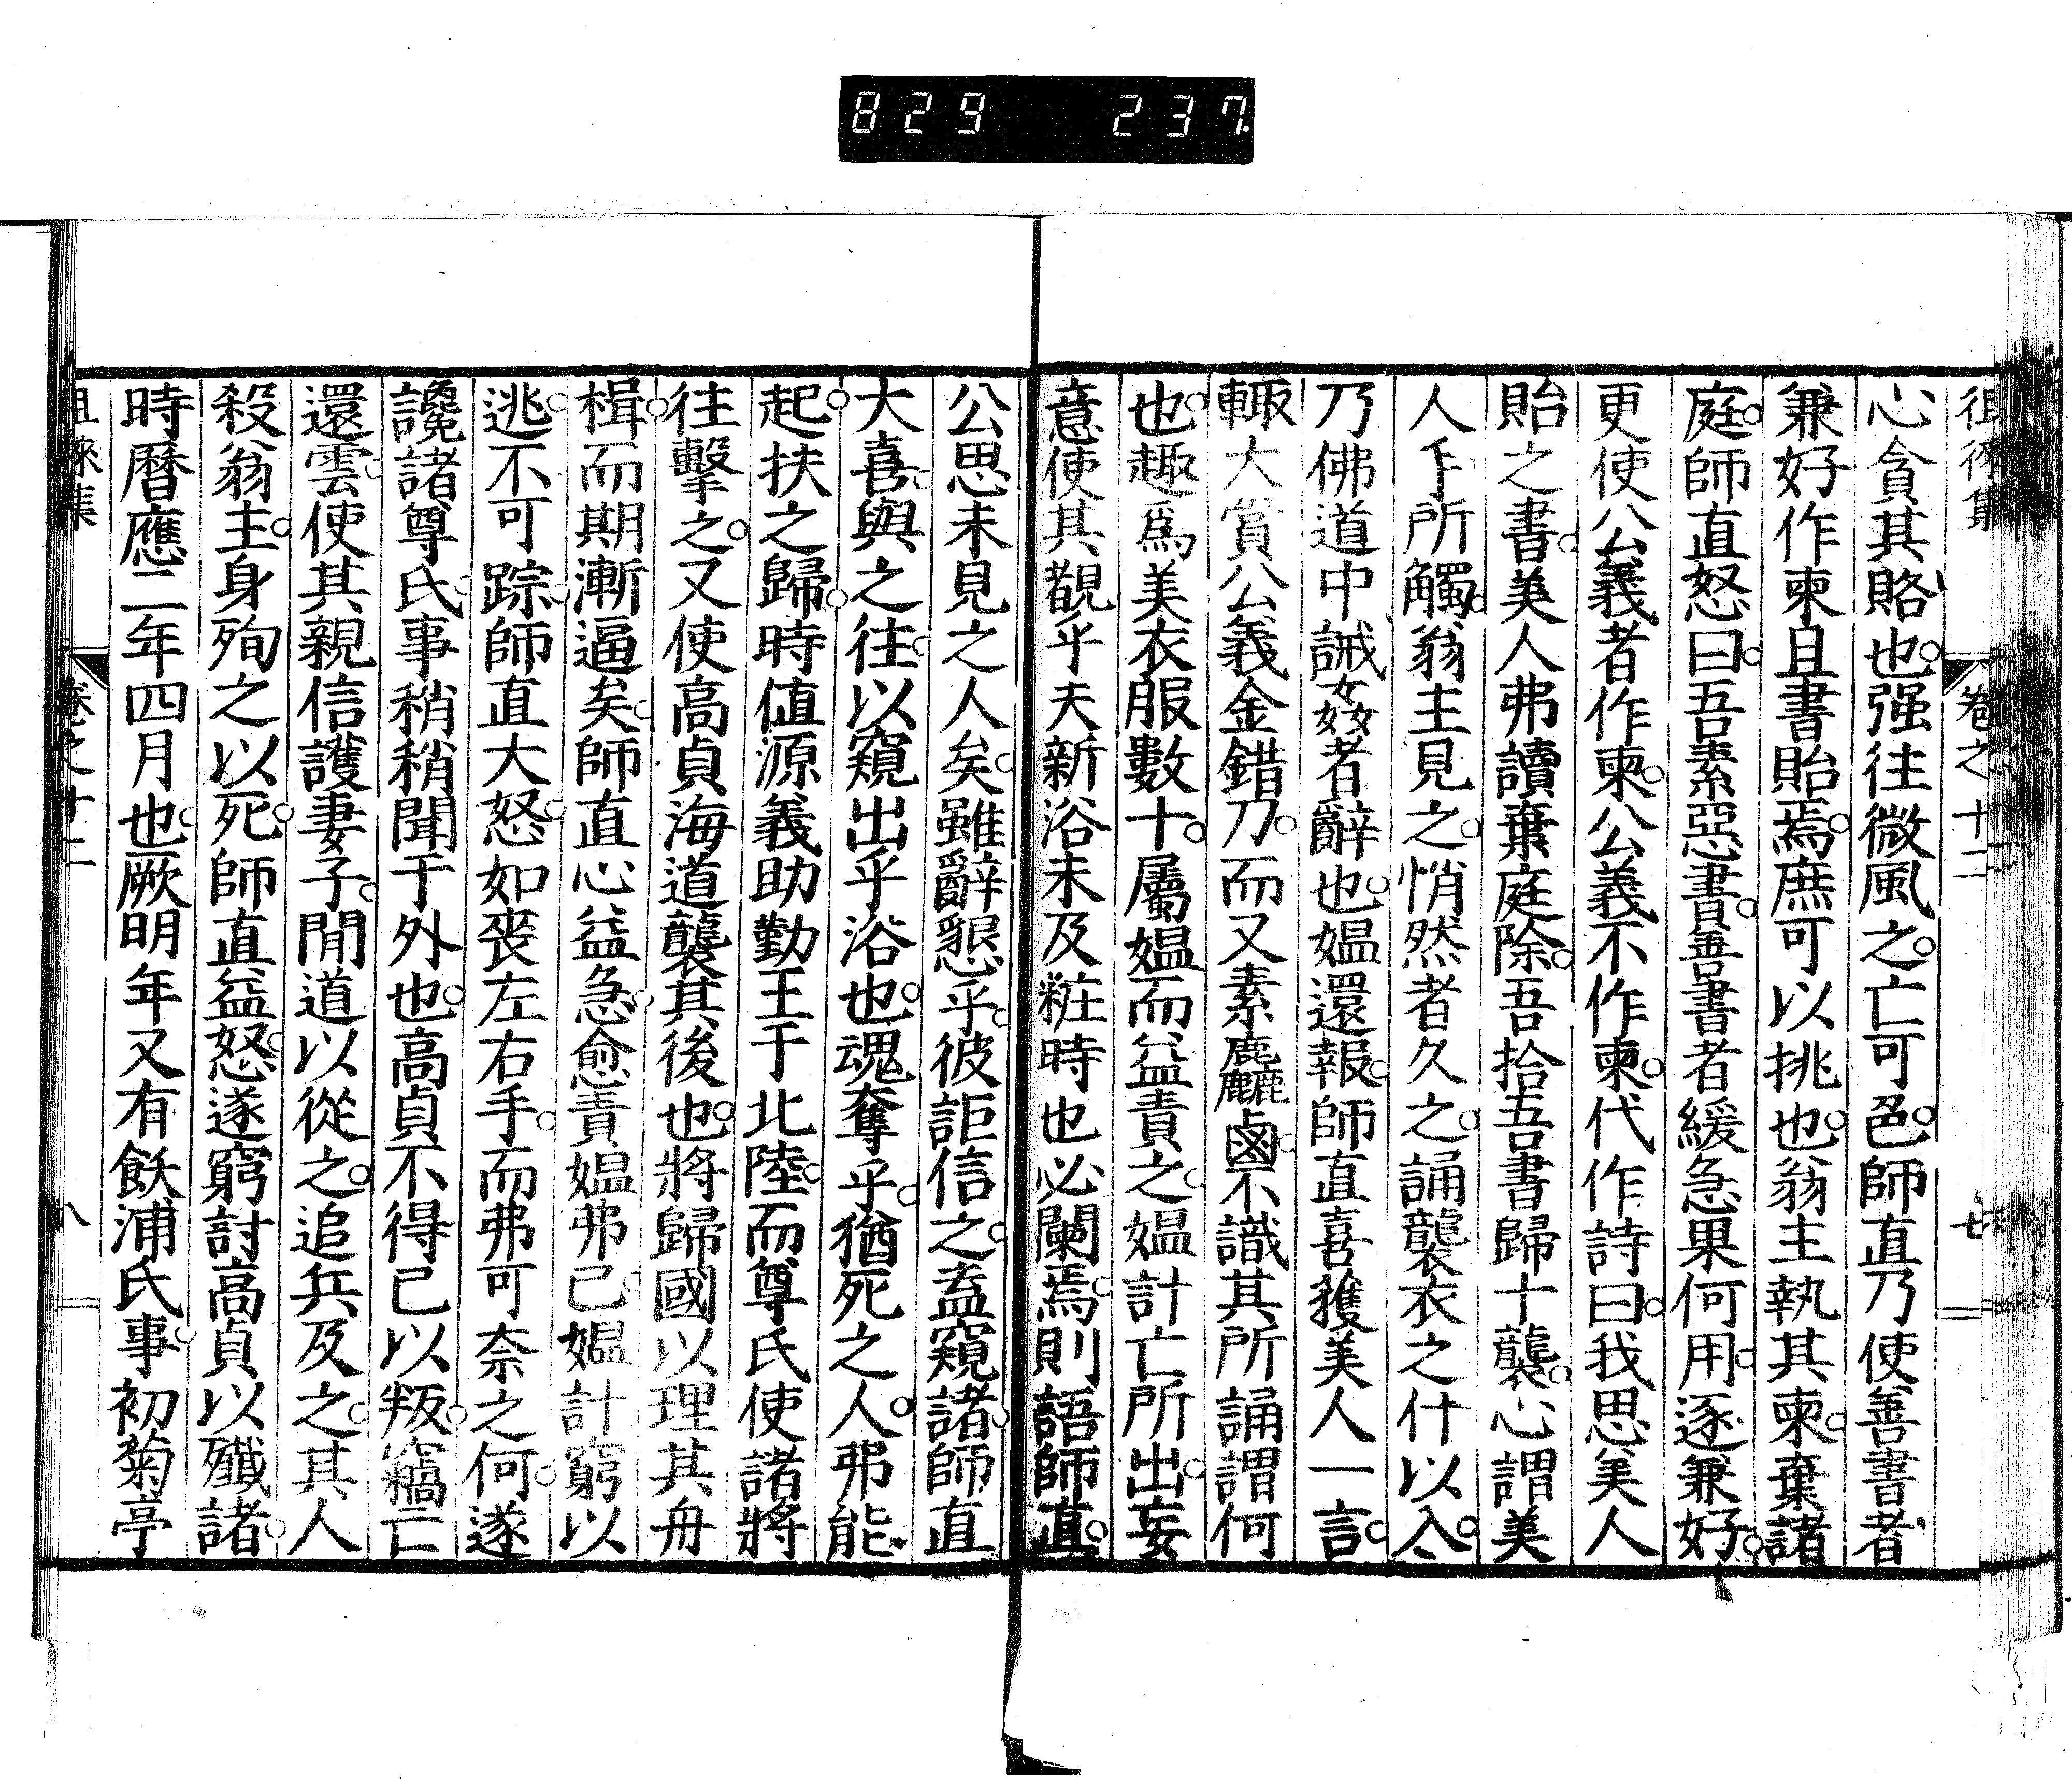 829 237
徂徠集 卷之十二 七
心貪其賂也。强往微風之。亡可。邑。師直乃使善書者
兼好作柬。且書貽焉。庶可以挑也。翁主執其柬。棄諸
庭。師直怒曰。吾素惡書。善書者緩急果何用。逐兼好。
更使公義者作柬。公義不作柬。代作詩曰。我思美人
貽之書。美人弗讀棄庭除。吾拾吾書歸十襲。心謂美
人手所觸。翁主見之。悄然者久之。誦襲衣之什以入。
乃佛道中誡姦者辭也。媼還報。師直喜獲美人一言。
輙大賞公義金錯刀。而又素麤鹵。不識其所誦謂何
也。趣爲美衣服數十。屬媼而益責之。媼計亡所出。妄
意使其覩乎夫新浴未及粧時也必闌焉。則語師直。
公思未見之人矣。雖辭懇乎。彼詎信之。盍窺諸。師直
大喜。與之往。以窺出乎浴也。魂奪乎。猶死之人。弗能
起。扶之歸。時值源義助勤王于北陸。而尊氏使諸將
往擊之。又使高貞海道襲其後也。將歸國以理其舟
楫。而期漸逼矣。師直心益急。愈責媼弗已。媼計窮以
逃。不可踪。師直大怒。如喪左右手。而弗可奈之何。遂
讒諸尊氏。事稍稍聞于外也。高貞不得已以叛。竊亡
還雲。使其親信護妻子。閒道以從之。追兵及之。其人
殺翁主。身殉之以死。師直益怒。遂窮討高貞以殲諸。
時曆應二年四月也。厥明年又有飫浦氏事。初菊亭
徂徠集 卷之十二 八